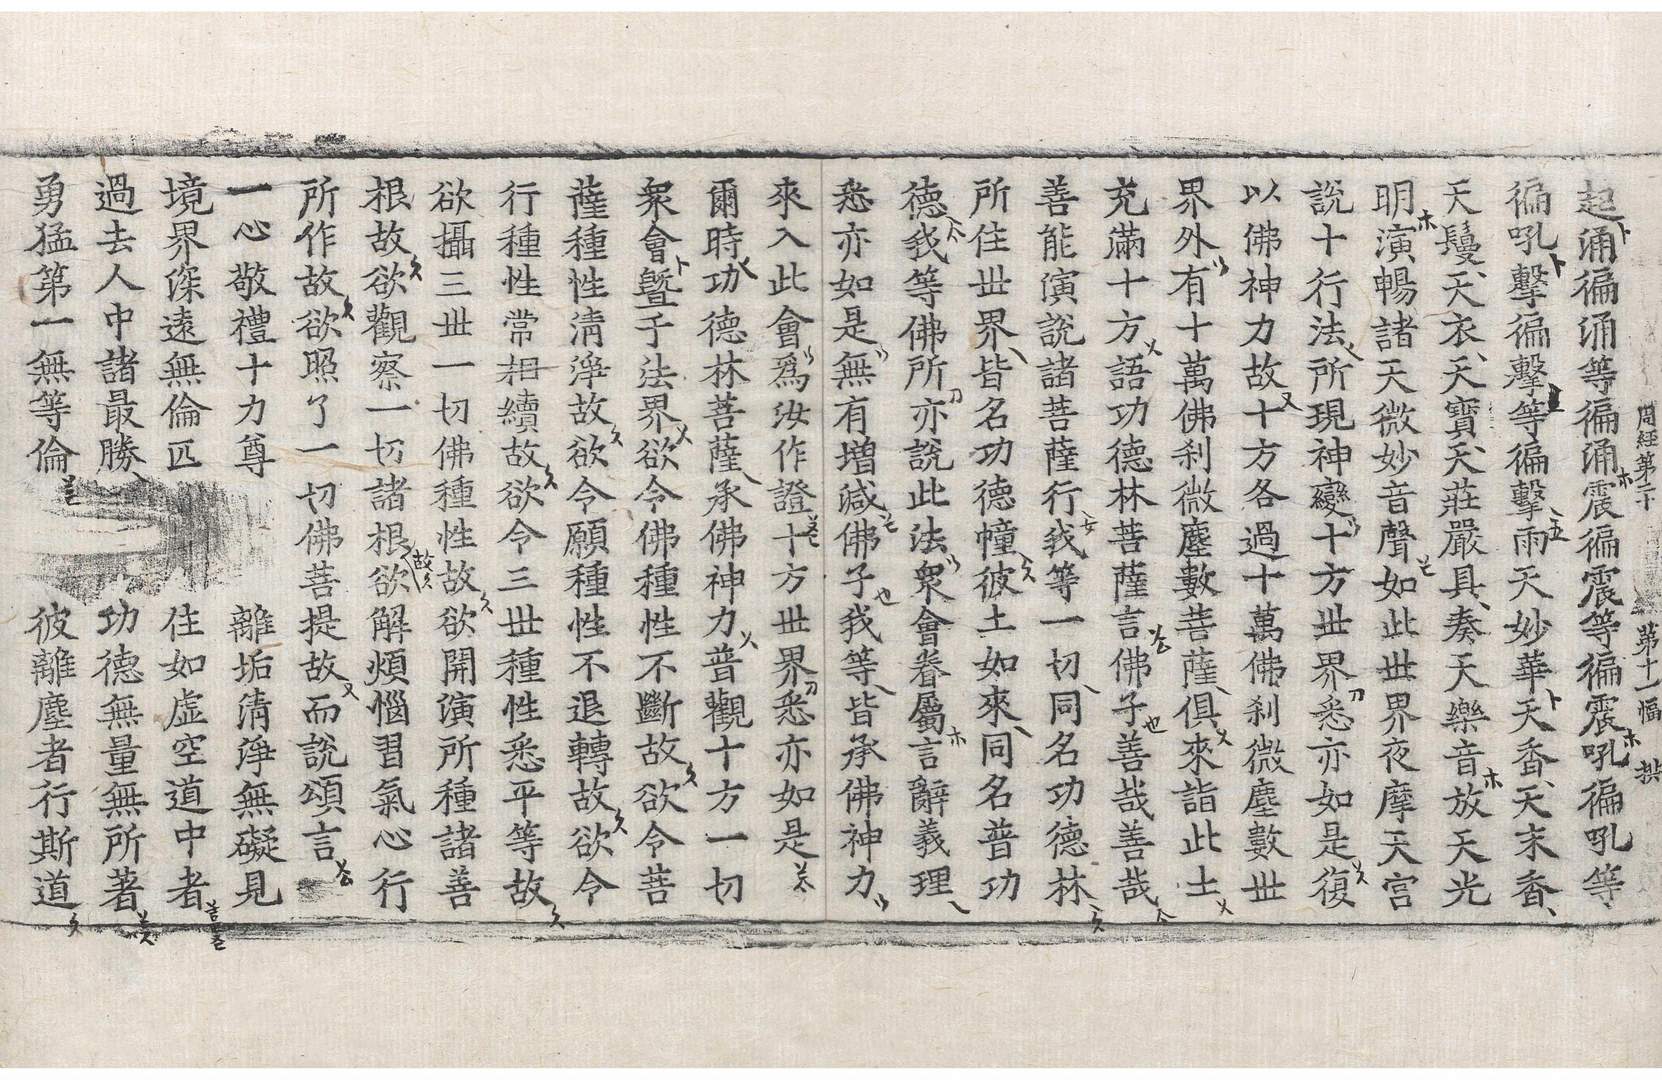 周經第二十 第十一幅
起涌徧涌等徧涌震徧震等徧震吼徧吼等
徧吼擊徧擊等徧擊雨天妙華天香天末香
天鬘天衣天寶天莊嚴具奏天樂音放天光
明演暢諸天微妙音聲如此世界夜摩天宮
說十行法所現神變十方世界悉亦如是復
以佛神力故十方各過十萬佛刹微塵數世
界外有十萬佛刹微塵數菩薩俱來詣此土
充滿十方語功德林菩薩言佛子善哉善哉
善能演說諸菩薩行我等一切同名功德林
所住世界皆名功德幢彼土如來同名普功
德我等佛所亦說此法衆會眷屬言辭義理
悉亦如是無有增減佛子我等皆承佛神力
來入此會爲汝作證十方世界悉亦如是
爾時功德林菩薩承佛神力普觀十方一切
衆會曁于法界欲令佛種性不斷故欲令菩
薩種性清淨故欲令願種性不退轉故欲令
行種性常相續故欲令三世種性悉平等故
欲攝三世一切佛種性故欲開演所種諸善
根故欲觀察一切諸根欲解煩惱習氣心行
所作故欲照了一切佛菩提故而說頌言
一心敬禮十力尊 離垢清淨無礙見
境界深遠無倫匹 住如虛空道中者
過去人中諸最勝 功德無量無所著
勇猛第一無等倫 彼離塵者行斯道